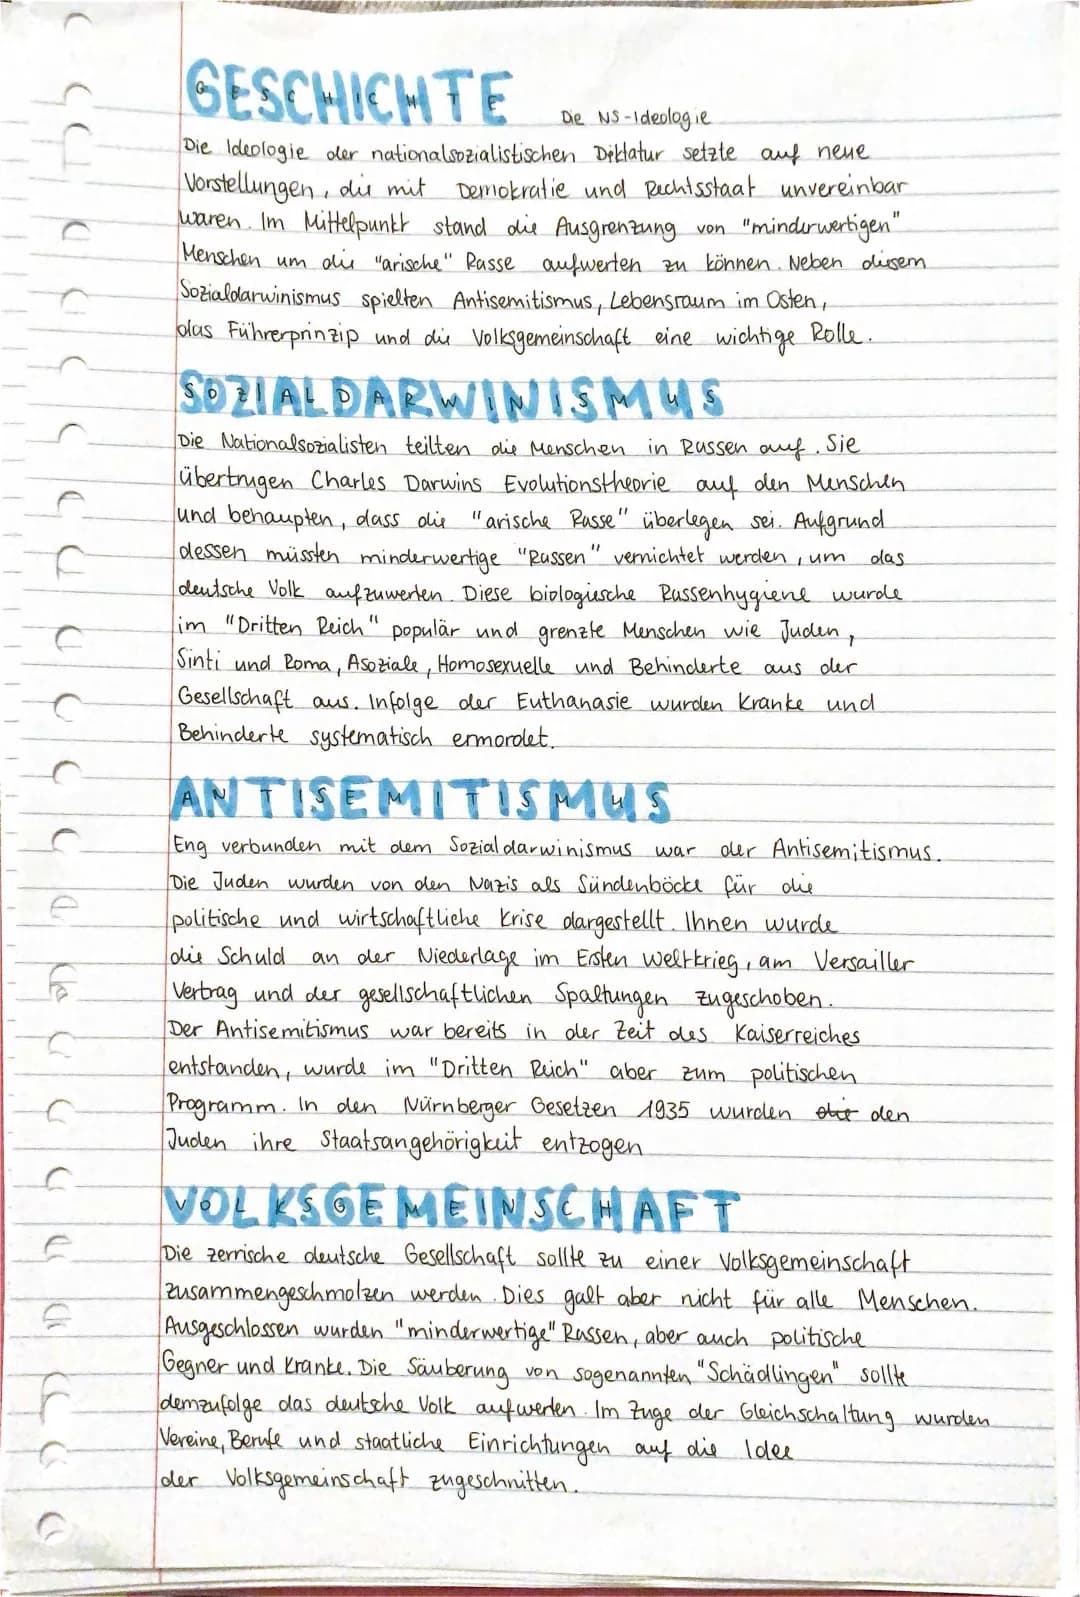 GESCHICHTE Die NS-Ideologie
Die Ideologie der nationalsozialistischen Diktatur setzte auf neue
Vorstellungen, die mit Demokratie und Rechtsstaat unvereinbar
waren. Im Mittelpunkt stand die Ausgrenzung von "minderwertigen"
Menschen um die "arische" Rasse aufwerten zu können. Neben diesem
Sozialdarwinismus spielten Antisemitismus, Lebensraum im Osten,
das Führerprinzip und die Volksgemeinschaft eine wichtige Rolle.
SOZIALDARWINISMUS
Die Nationalsozialisten teilten die Menschen in Rassen auf. Sie
übertrugen Charles Darwins Evolutionstheorie auf den Menschen
und behaupten, dass die "arische Rasse" überlegen sei. Aufgrund
dessen müssten minderwertige "Rassen" vernichtet werden, um das
deutsche Volk aufzuwerten. Diese biologiesche Rassenhygiene wurde
im "Dritten Reich" populär und grenzte Menschen wie Juden,
Sinti und Roma, Asoziale, Homosexuelle und Behinderte aus der
Gesellschaft aus. Infolge der Euthanasie wurden Kranke und
Behinderte systematisch ermordet.
ANTISEMITISMUS
Eng verbunden mit dem Sozialdarwinismus war der Antisemitismus.
Die Juden wurden von den Nazis als Sündenböcke für die
politische und wirtschaftliche Krise dargestellt. Ihnen wurde
die Schuld an der Niederlage im Ersten Weltkrieg, am Versailler
Vertrag und der gesellschaftlichen Spaltungen zugeschoben.
Der Antisemitismus war bereits in der Zeit des Kaiserreiches
entstanden, wurde im "Dritten Reich" aber zum politischen
Programm. In den Nürnberger Gesetzen 1935 wurden die den
Juden ihre Staatsangehörigkeit entzogen
VOLKSGEMEINSCHAFT
Die zerrische deutsche Gesellschaft sollte zu einer Volksgemeinschaft
zusammengeschmolzen werden. Dies galt aber nicht für alle Menschen.
Ausgeschlossen wurden "minderwertige" Rassen, aber auch politische
Gegner und Kranke. Die Säuberung von sogenannten "Schädlingen" sollte
demzufolge das deutsche Volk aufwerten. Im Zuge der Gleichschaltung wurden
Vereine, Berufe und staatliche Einrichtungen auf die Idee
der Volksgemeinschaft zugeschnitten.